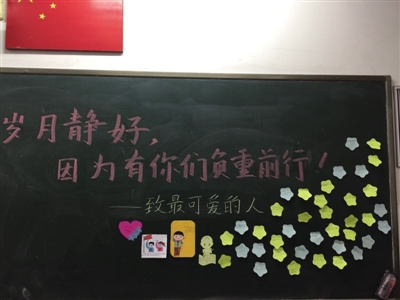 岁月静好，
因为有你们负重前行！
——致最可爱的人